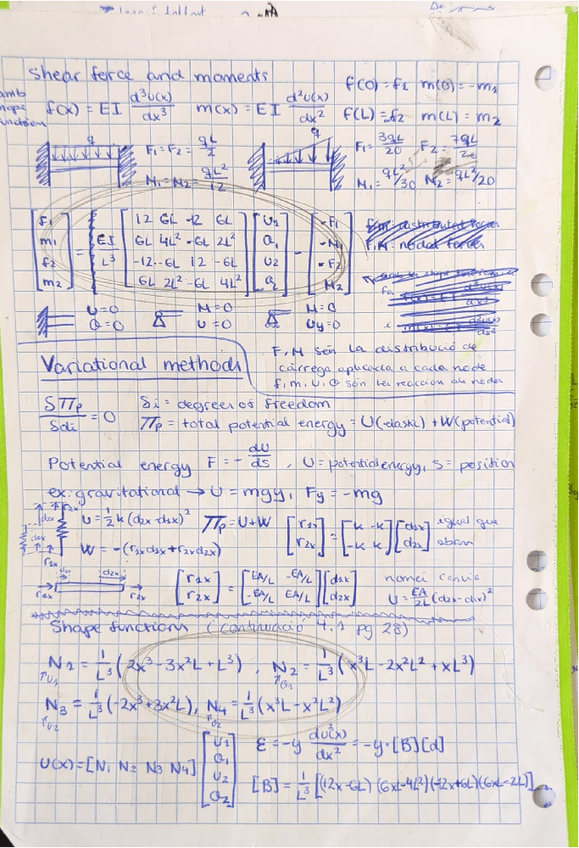 Shear force and moments
f(0) = f₂ m(0) = -m₁
amb
shape
función
f(x) = EI d³υ(x)/dx³ m(x) = EI d²υ(x)/dx²
f(L) = f₂ m(L) = m₂
q
F₁ = F₂ = qL/2
M₁ = M₂ = qL²/12
q
F₁ = 3qL/20 F₂ = 7qL/20
M₁ = qL²/30 M₂ = qL²/20
[f₁ m₁ f₂ m₂] = EI/L³ [12 6L -12 6L; 6L 4L² -6L 2L²; -12 -6L 12 -6L; 6L 2L² -6L 4L²] [υ₁ θ₁ υ₂ θ₂] - [-F₁ -M₁ -F₂ M₂]
F, M nodal forces
υ=0 M=0 M=0
θ=0 υ=0 υy=0
F, M són la distribució de
càrrega aplicada a cada node
f, m, υ, θ són les reaccion au nodes
Variational methods
δπp/δdi = 0 δi = degrees of freedom
πp = total potential energy = U(elastic) + W(potential)
Potential energy F = - dU/ds , U = potential energy, S = position
ex: gravitational → U = mgy, Fy = -mg
r₂x
d₂x
d₁x
r₁x
U = ½ k (d₂x - d₁x)² πp = U + W [r₁x r₂x] = [k -k; -k k] [d₁x d₂x] igual que
abans
W = -(r₁x d₁x + r₂x d₂x)
d₂x
r₁x r₂x
[r₁x r₂x] = [EA/L -EA/L; -EA/L EA/L] [d₁x d₂x] només canvia
U = EA/2L (d₂x - d₁x)²
Shape functions (continuació 4.1 pg 28)
N₁ = 1/L³ (2x³ - 3x²L + L³) , N₂ = 1/L³ (x³L - 2x²L² + xL³)
↑υ₁ ↑θ₁
N₃ = 1/L³ (-2x³ + 3x²L), N₄ = 1/L³ (x³L - x²L²)
↑υ₂ ↑θ₂
υ(x) = [N₁ N₂ N₃ N₄] [υ₁ θ₁ υ₂ θ₂] ε = -y dυ²(x)/dx² = -y·[B][d]
[B] = 1/L³ [(12x-6L) (6xL-4L²) (-12x+6L) (6xL-2L)]